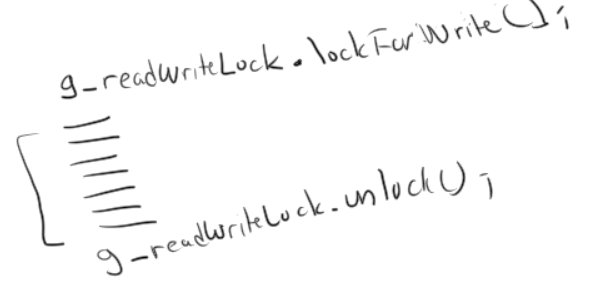 g_readWriteLock.lockForWrite();
g_readWriteLock.unlock();